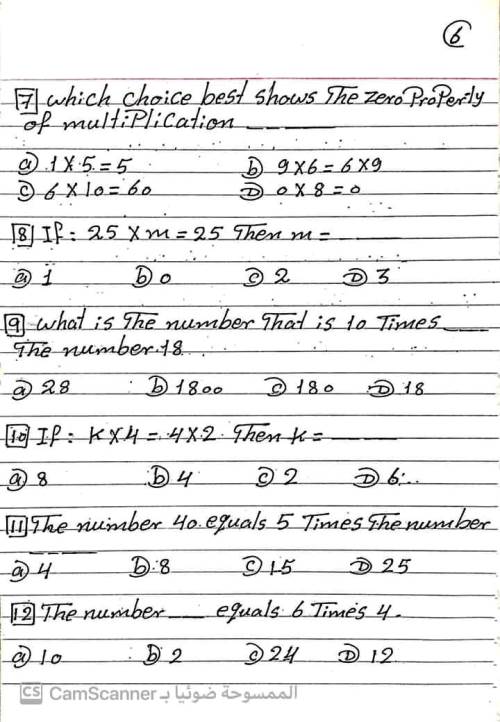 6
7 which choice best shows The zero Property
of multiplication ______
a) 1 X 5 = 5 b) 9X6 = 6X9
c) 6 X 10 = 60 D) 0 X 8 = 0
8 If: 25 X m = 25 Then m = ____
a) 1 b) 0 c) 2 D) 3
9 what is The number That is 10 Times ___
The number 18
a) 28 b) 1800 c) 180 D) 18
10 If: K X 4 = 4 X 2 Then K = ____
a) 8 b) 4 c) 2 D) 6
11 The number 40 equals 5 Times The number
____
a) 4 b) 8 c) 15 D) 25
12 The number ___ equals 6 Times 4.
a) 10 b) 2 c) 24 D) 12
CS CamScanner الممسوحة ضوئيا بـ